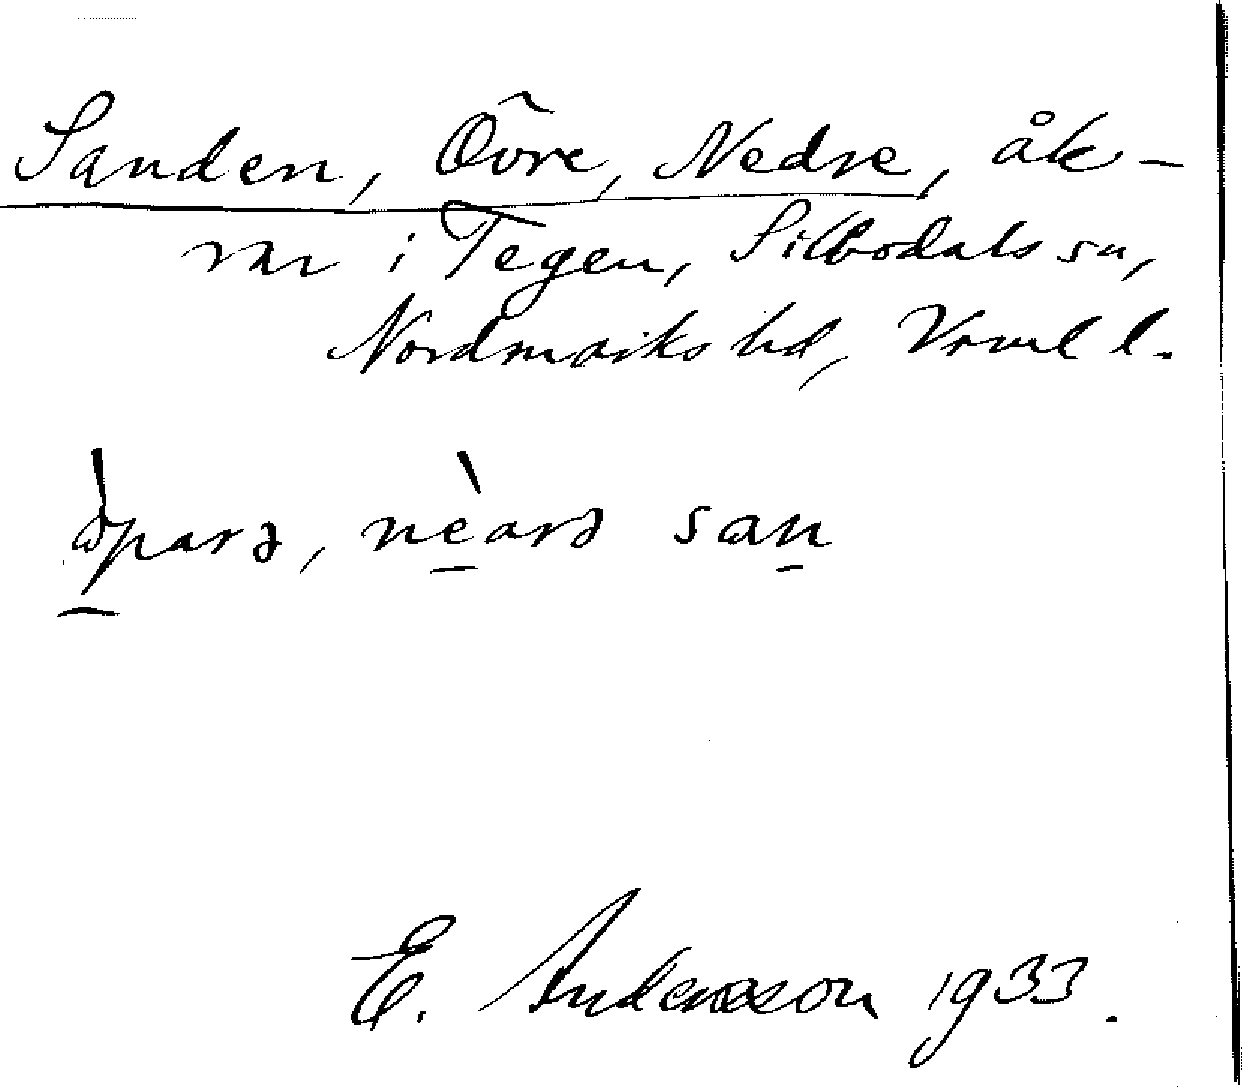 Sanden, Övre, Nedre, åk-
rar i Tegen, Silbodals sn,
Nordmarks hd, Vrml l.
nèarə san
E. Andersson 1933.